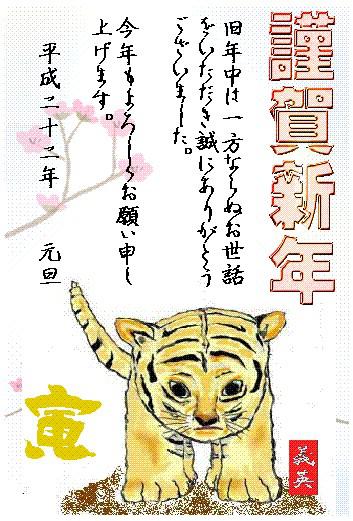 謹賀新年
旧年中は一方ならぬお世話
をいただき誠にありがとう
ございました。
今年もよろしくお願い申し
上げます。
平成二十二年 元旦
寅
義英